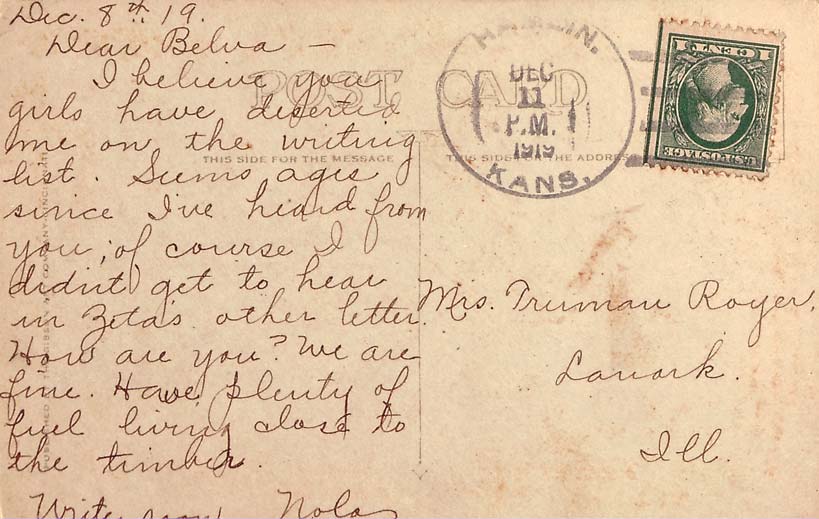 Dec. 8th 19.
Dear Belva —
I believe you
girls have deserted
me on the writing
list. Seems ages
since I've heard from
you; of course I
didn't get to hear
in Zeta's other letter.
How are you? We are
fine. Have plenty of
fuel living close to
the timber.
Write soon Nola
POST CARD
THIS SIDE FOR THE MESSAGE
THIS SIDE THE ADDRESS
HAMLIN.
DEC
11
P.M.
1919
KANS.
U.S. POSTAGE
1 CENT 1
Mrs. Truman Royer,
Lanark.
Ill.